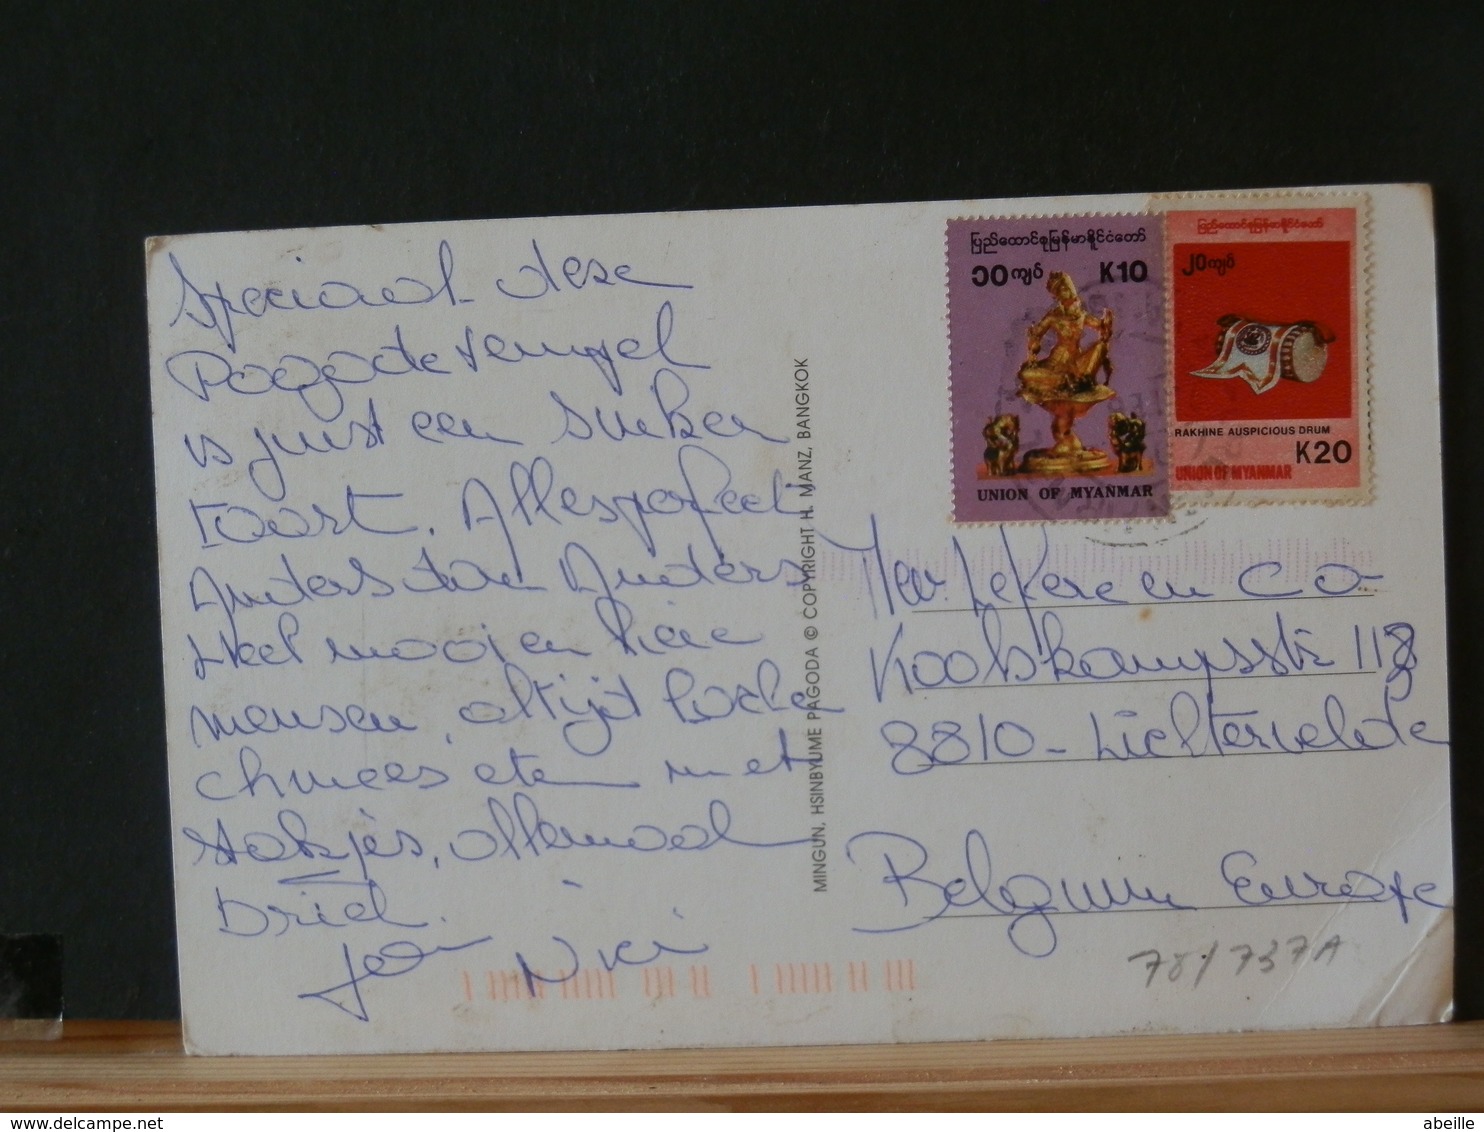 Speciaal deze
Pagodetempel
is juist een suiker
taart. Alles perfect
Anders dan Anders
Heel mooi en lieve
mensen, altijd
chinees eten met
stokjes, allemaal
Driek.
Niki
MINGUN, HSINBYUME PAGODA © COPYRIGHT H. MANZ, BANGKOK
ပြည်ထောင်စုမြန်မာနိုင်ငံတော်
၁၀ကျပ် K10
UNION OF MYANMAR
ပြည်ထောင်စုမြန်မာနိုင်ငံတော်
၂၀ကျပ်
RAKHINE AUSPICIOUS DRUM
K20
UNION OF MYANMAR
en Co
Koolskampstr 118
8810 - Lichtervelde
Belgium Europe
78/737A
abeille